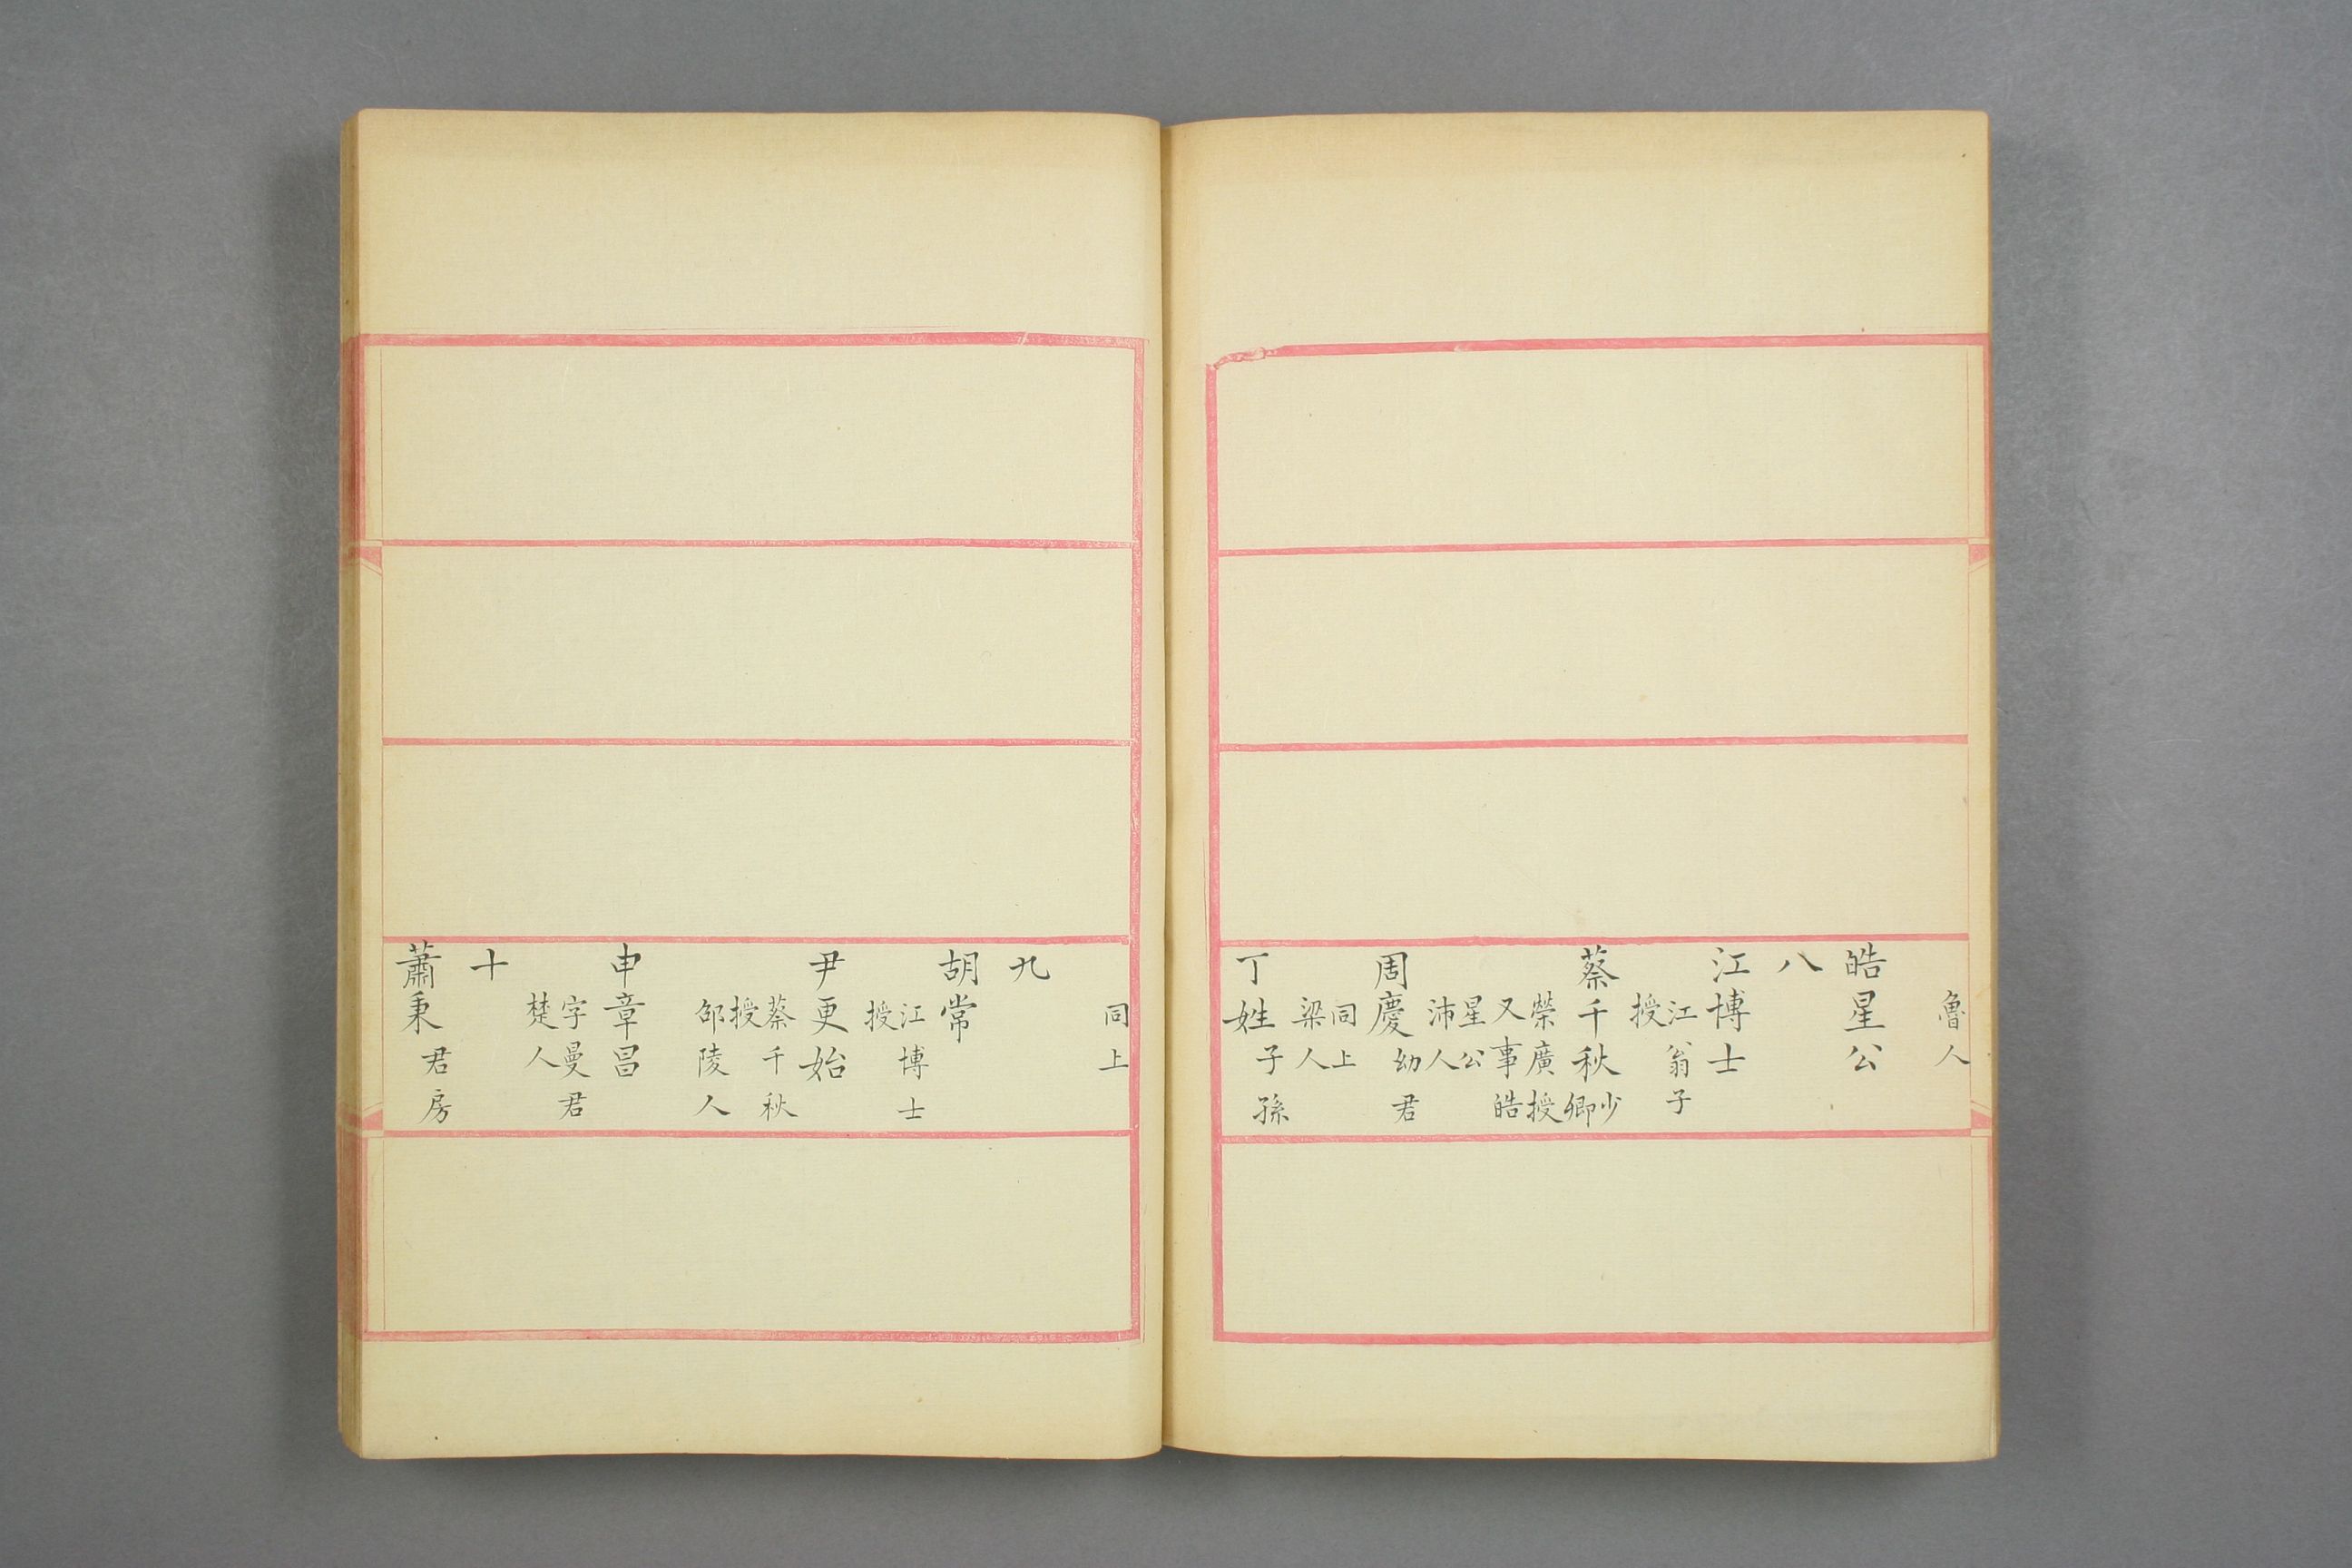 魯人
皓星公
八
江博士
江翁子
授
蔡千秋少卿
榮廣授
又事皓
星公
沛人
周慶幼君
同上
梁人
丁姓子孫
同上
九
胡常
江博士
授
尹更始
蔡千秋
授
邵陵人
申章昌
字曼君
楚人
十
蕭秉君房